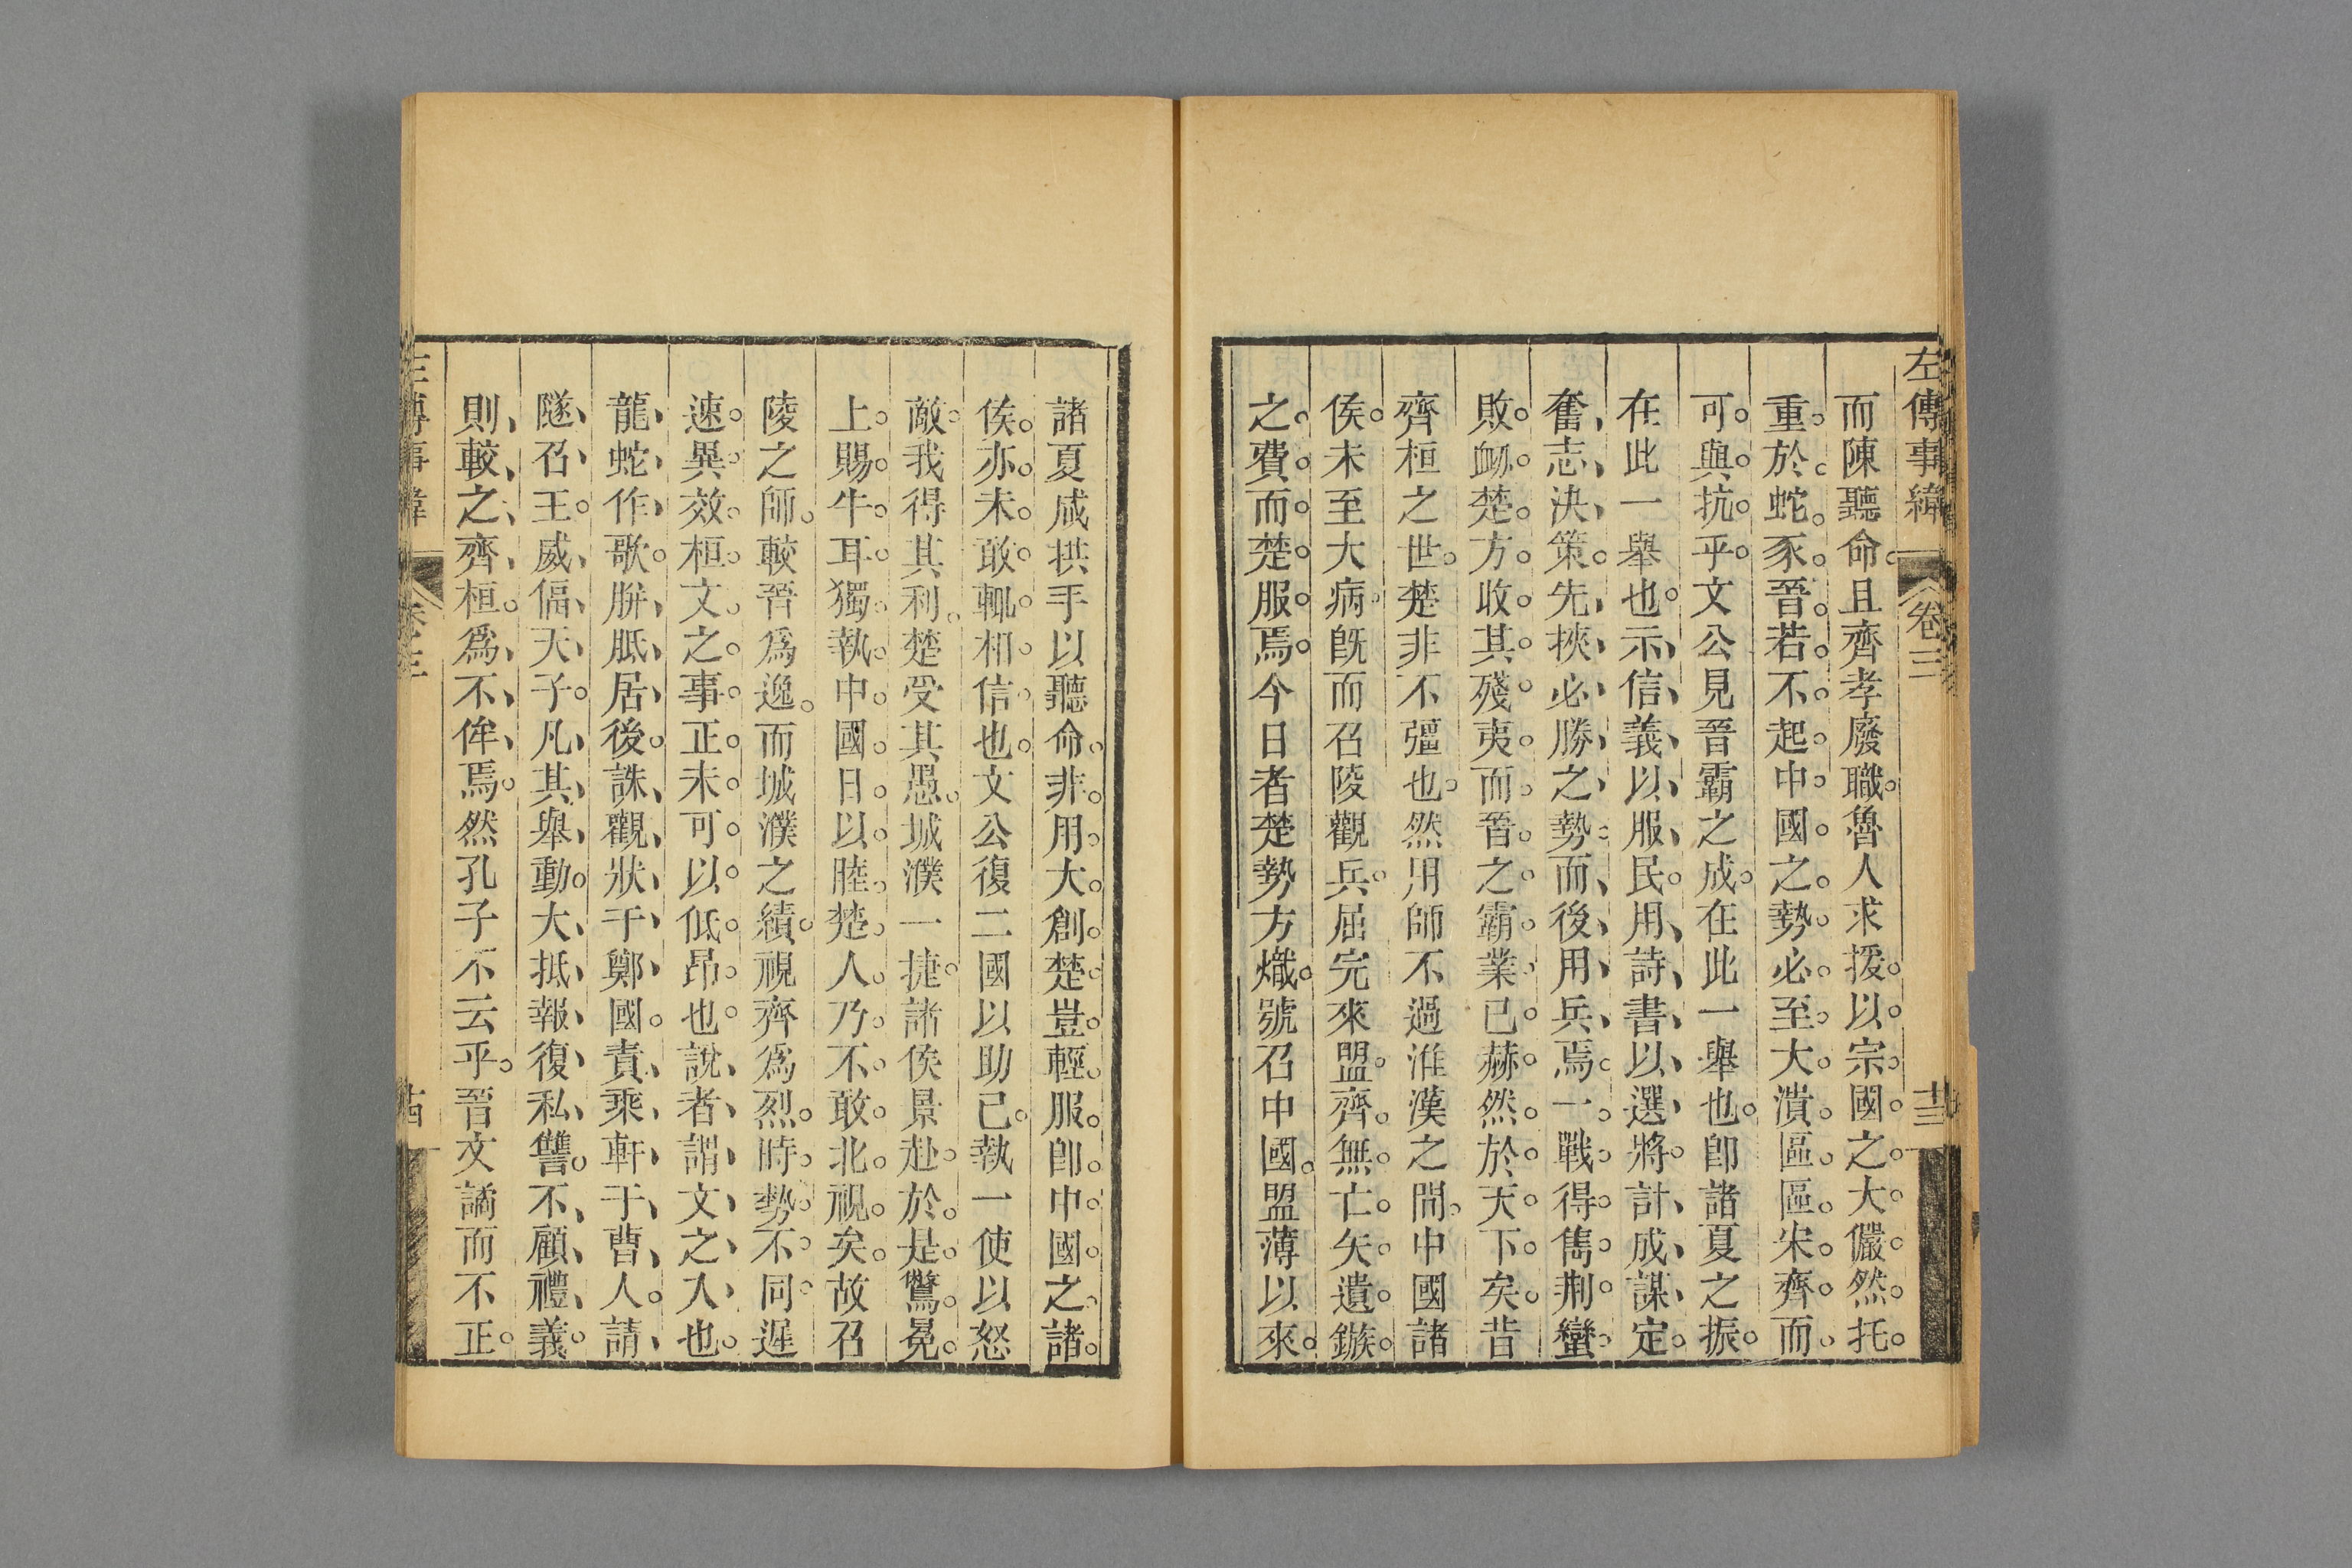 左傳事緯 卷三 十三
而陳聽命且齊孝廢職魯人求援以宗國之大儼然托
重於蛇豕晉若不起中國之勢必至大潰區區宋齊而
可與抗乎文公見晉霸之成在此一舉也卽諸夏之振
在此一舉也示信義以服民用詩書以選將計成謀定
奮志決策先挾必勝之勢而後用兵焉一戰得雋荆蠻
敗衂楚方收其殘夷而晉之霸業已赫然於天下矣昔
齊桓之世楚非不彊也然用師不過淮漢之間中國諸
侯未至大病旣而召陵觀兵屈完來盟齊無亡矢遺鏃
之費而楚服焉今日者楚勢方熾號召中國盟薄以來
諸夏咸拱手以聽命非用大創楚豈輕服卽中國之諸
侯亦未敢輒相信也文公復二國以助己執一使以怒
敵我得其利楚受其愚城濮一捷諸侯景赴於是驚冕
上賜牛耳獨執中國日以睦楚人乃不敢北視矣故召
陵之師較晉爲逸而城濮之績視齊爲烈時勢不同遲
速異效桓文之事正未可以低昂也說者謂文之入也
龍蛇作歌胼胝居後誅觀狀于鄭國責乘軒于曹人請
隧召王威偪天子凡其舉動大抵報復私讐不顧禮義
則較之齊桓爲不侔焉然孔子不云乎晉文譎而不正
左傳事緯 卷三 十四